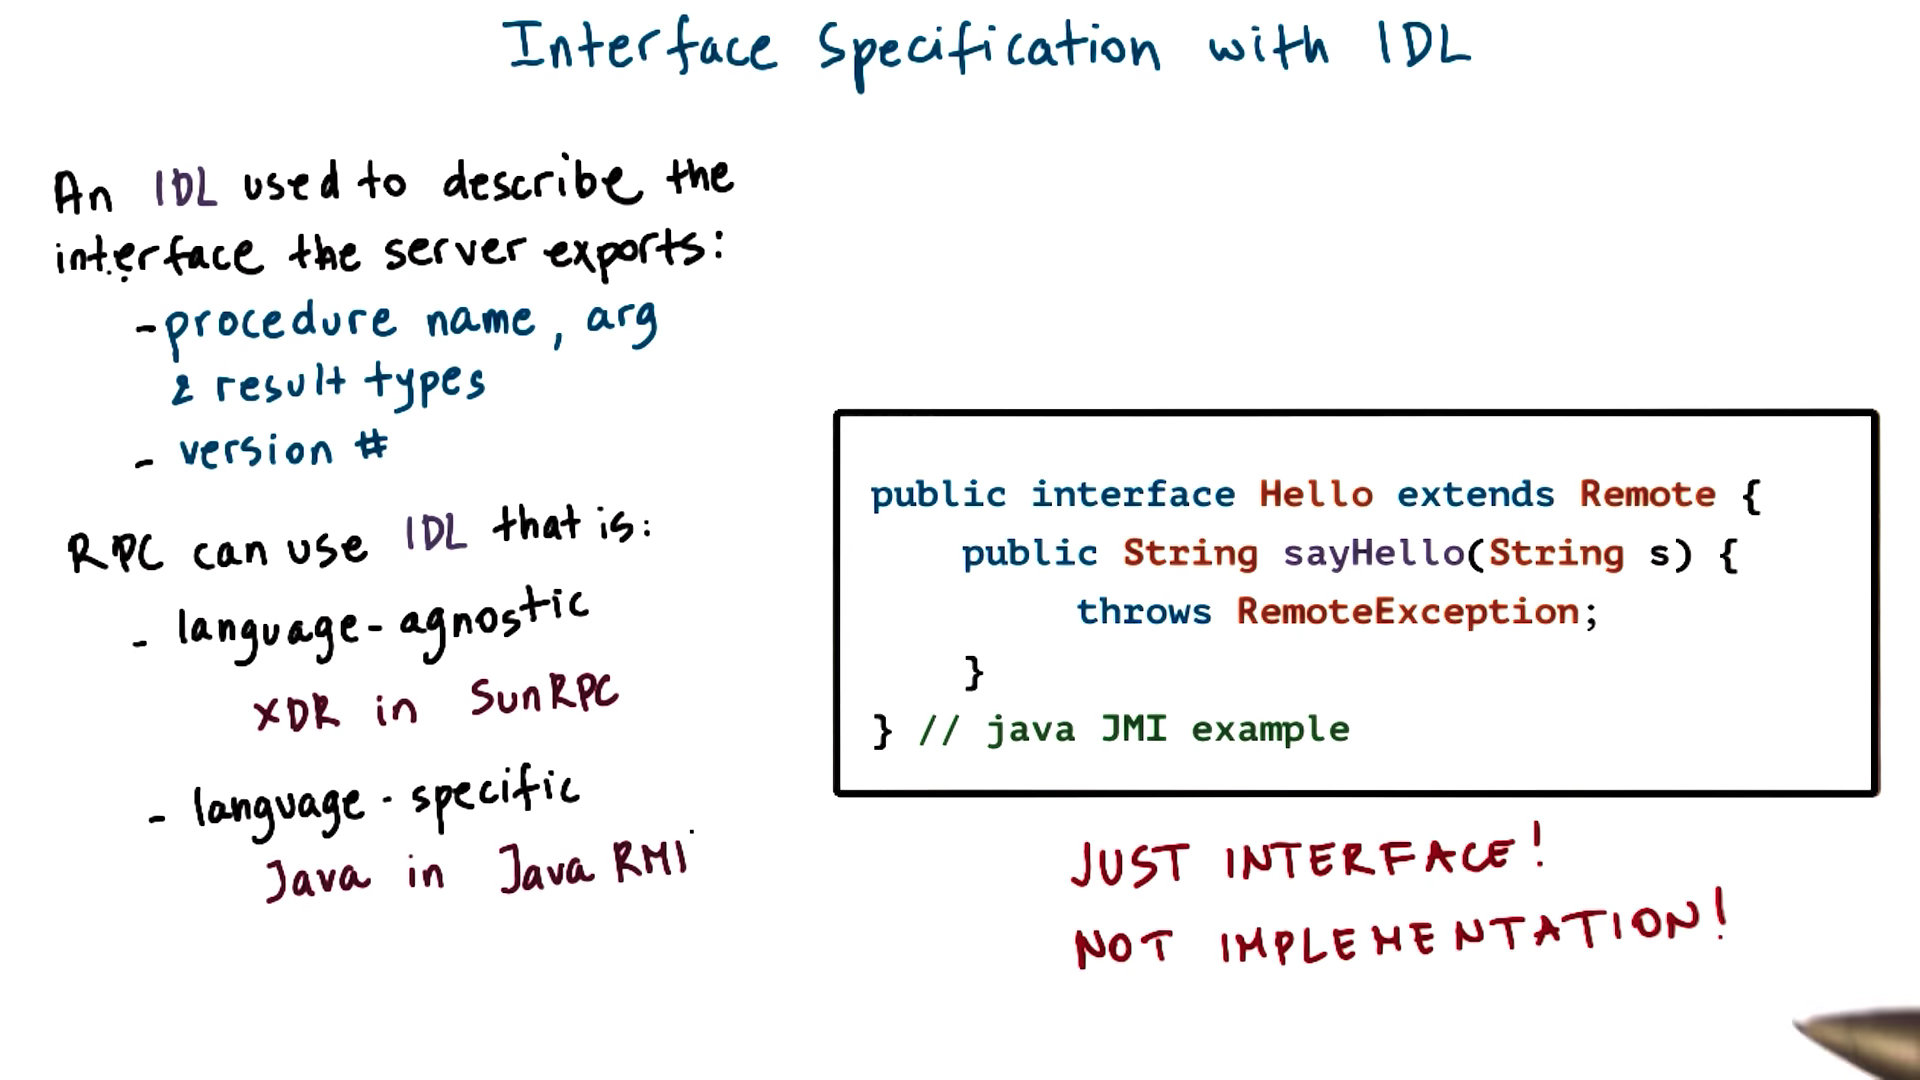 Interface Specification with IDL
An IDL used to describe the
interface the server exports:
- procedure name, arg
& result types
- version #
RPC can use IDL that is:
- language-agnostic
XDR in SunRPC
- language-specific
Java in Java RMI
public interface Hello extends Remote {
public String sayHello(String s) {
throws RemoteException;
}
} // java JMI example
JUST INTERFACE!
NOT IMPLEMENTATION!